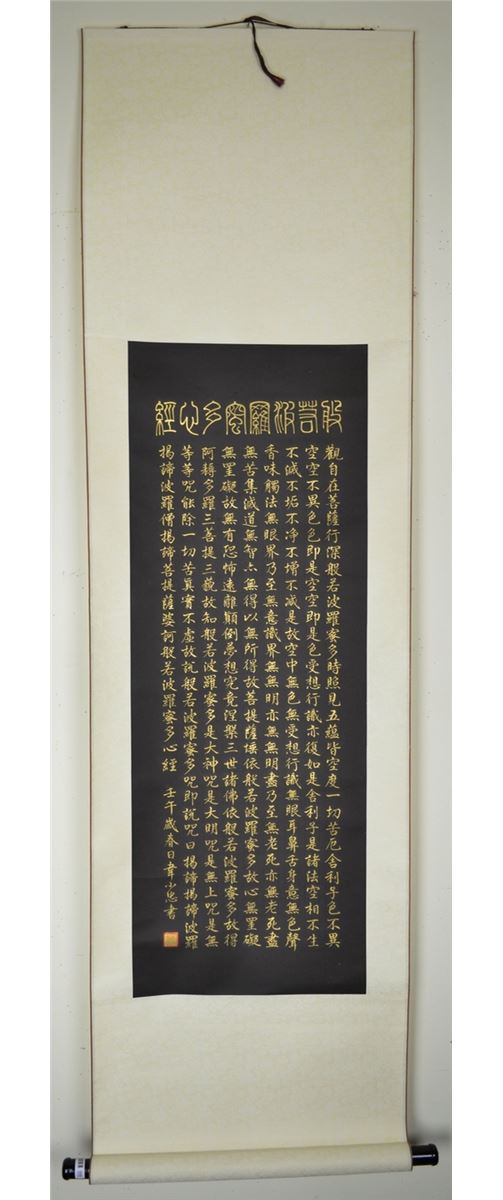 般若波羅蜜多心經
觀自在菩薩行深般若波羅蜜多時照見五蘊皆空度一切苦厄舍利子色不異
空空不異色色即是空空即是色受想行識亦復如是舍利子是諸法空相不生
不滅不垢不净不增不減是故空中無色無受想行識無眼耳鼻舌身意無色聲
香味觸法無眼界乃至無意識界無無明亦無無明盡乃至無老死亦無老死盡
無苦集滅道無智亦無得以無所得故菩提薩埵依般若波羅蜜多故心無罣礙
無罣礙故無有恐怖遠離顛倒夢想究竟涅槃三世諸佛依般若波羅蜜多故得
阿耨多羅三藐三菩提故知般若波羅蜜多是大神咒是大明咒是無上咒是無
等等咒能除一切苦真實不虛故說般若波羅蜜多咒即說咒曰揭諦揭諦波羅
揭諦波羅僧揭諦菩提薩婆訶般若波羅蜜多心經 壬午歲春日韋小忠書